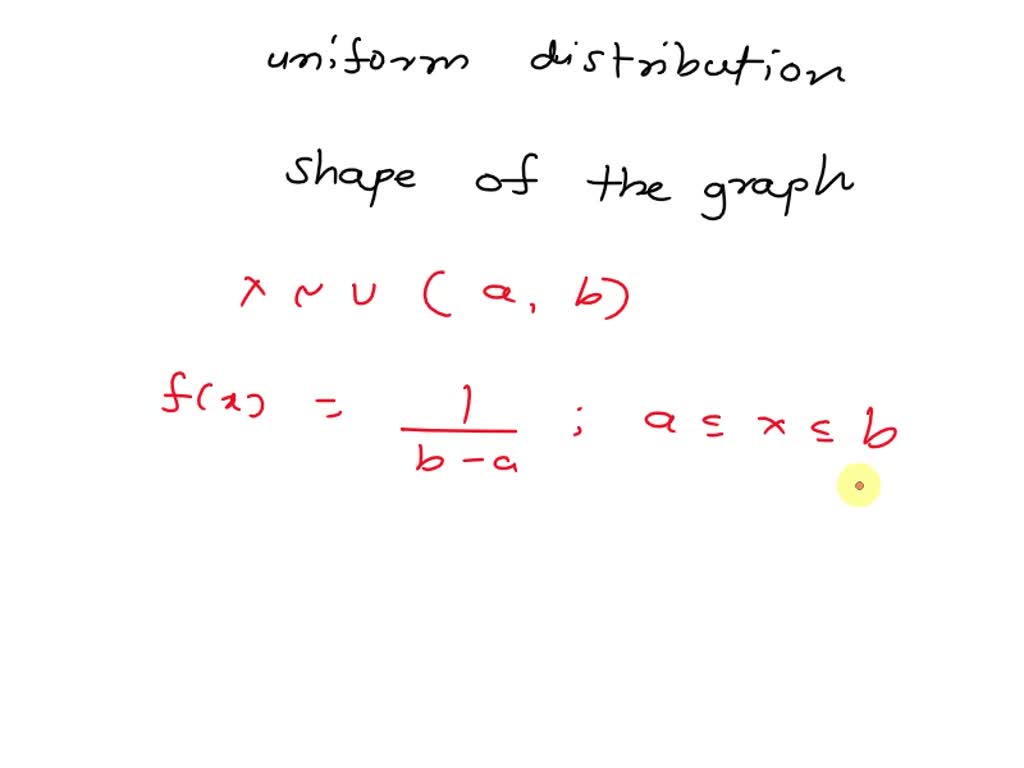 uniform distribution
shape of the graph
x ~ U (a, b)
f(x) = 1/(b-a) ; a ≤ x ≤ b